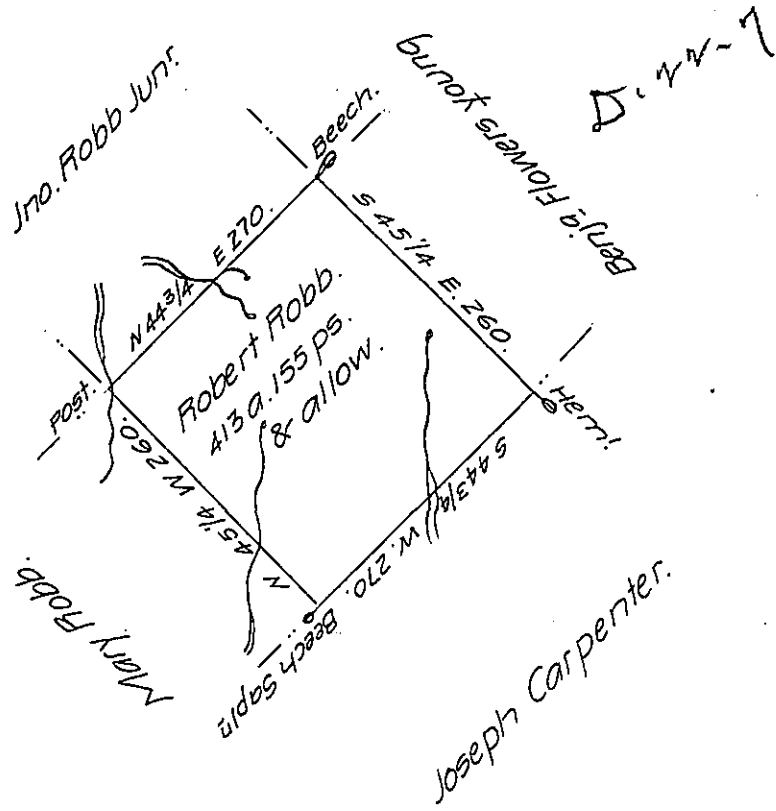 Jno. Robb Junr.
Beech.
Benja. Flowers Young
D. 22-7
N 44 3/4 E 270.
S 45 1/4 E. 260.
Robert Robb.
413 a. 155 ps.
& allow.
Post.
Heml
N 45 1/4 W 260.
S 44 3/4 W. 270.
Beech Sapln
Mary Robb.
Joseph Carpenter.